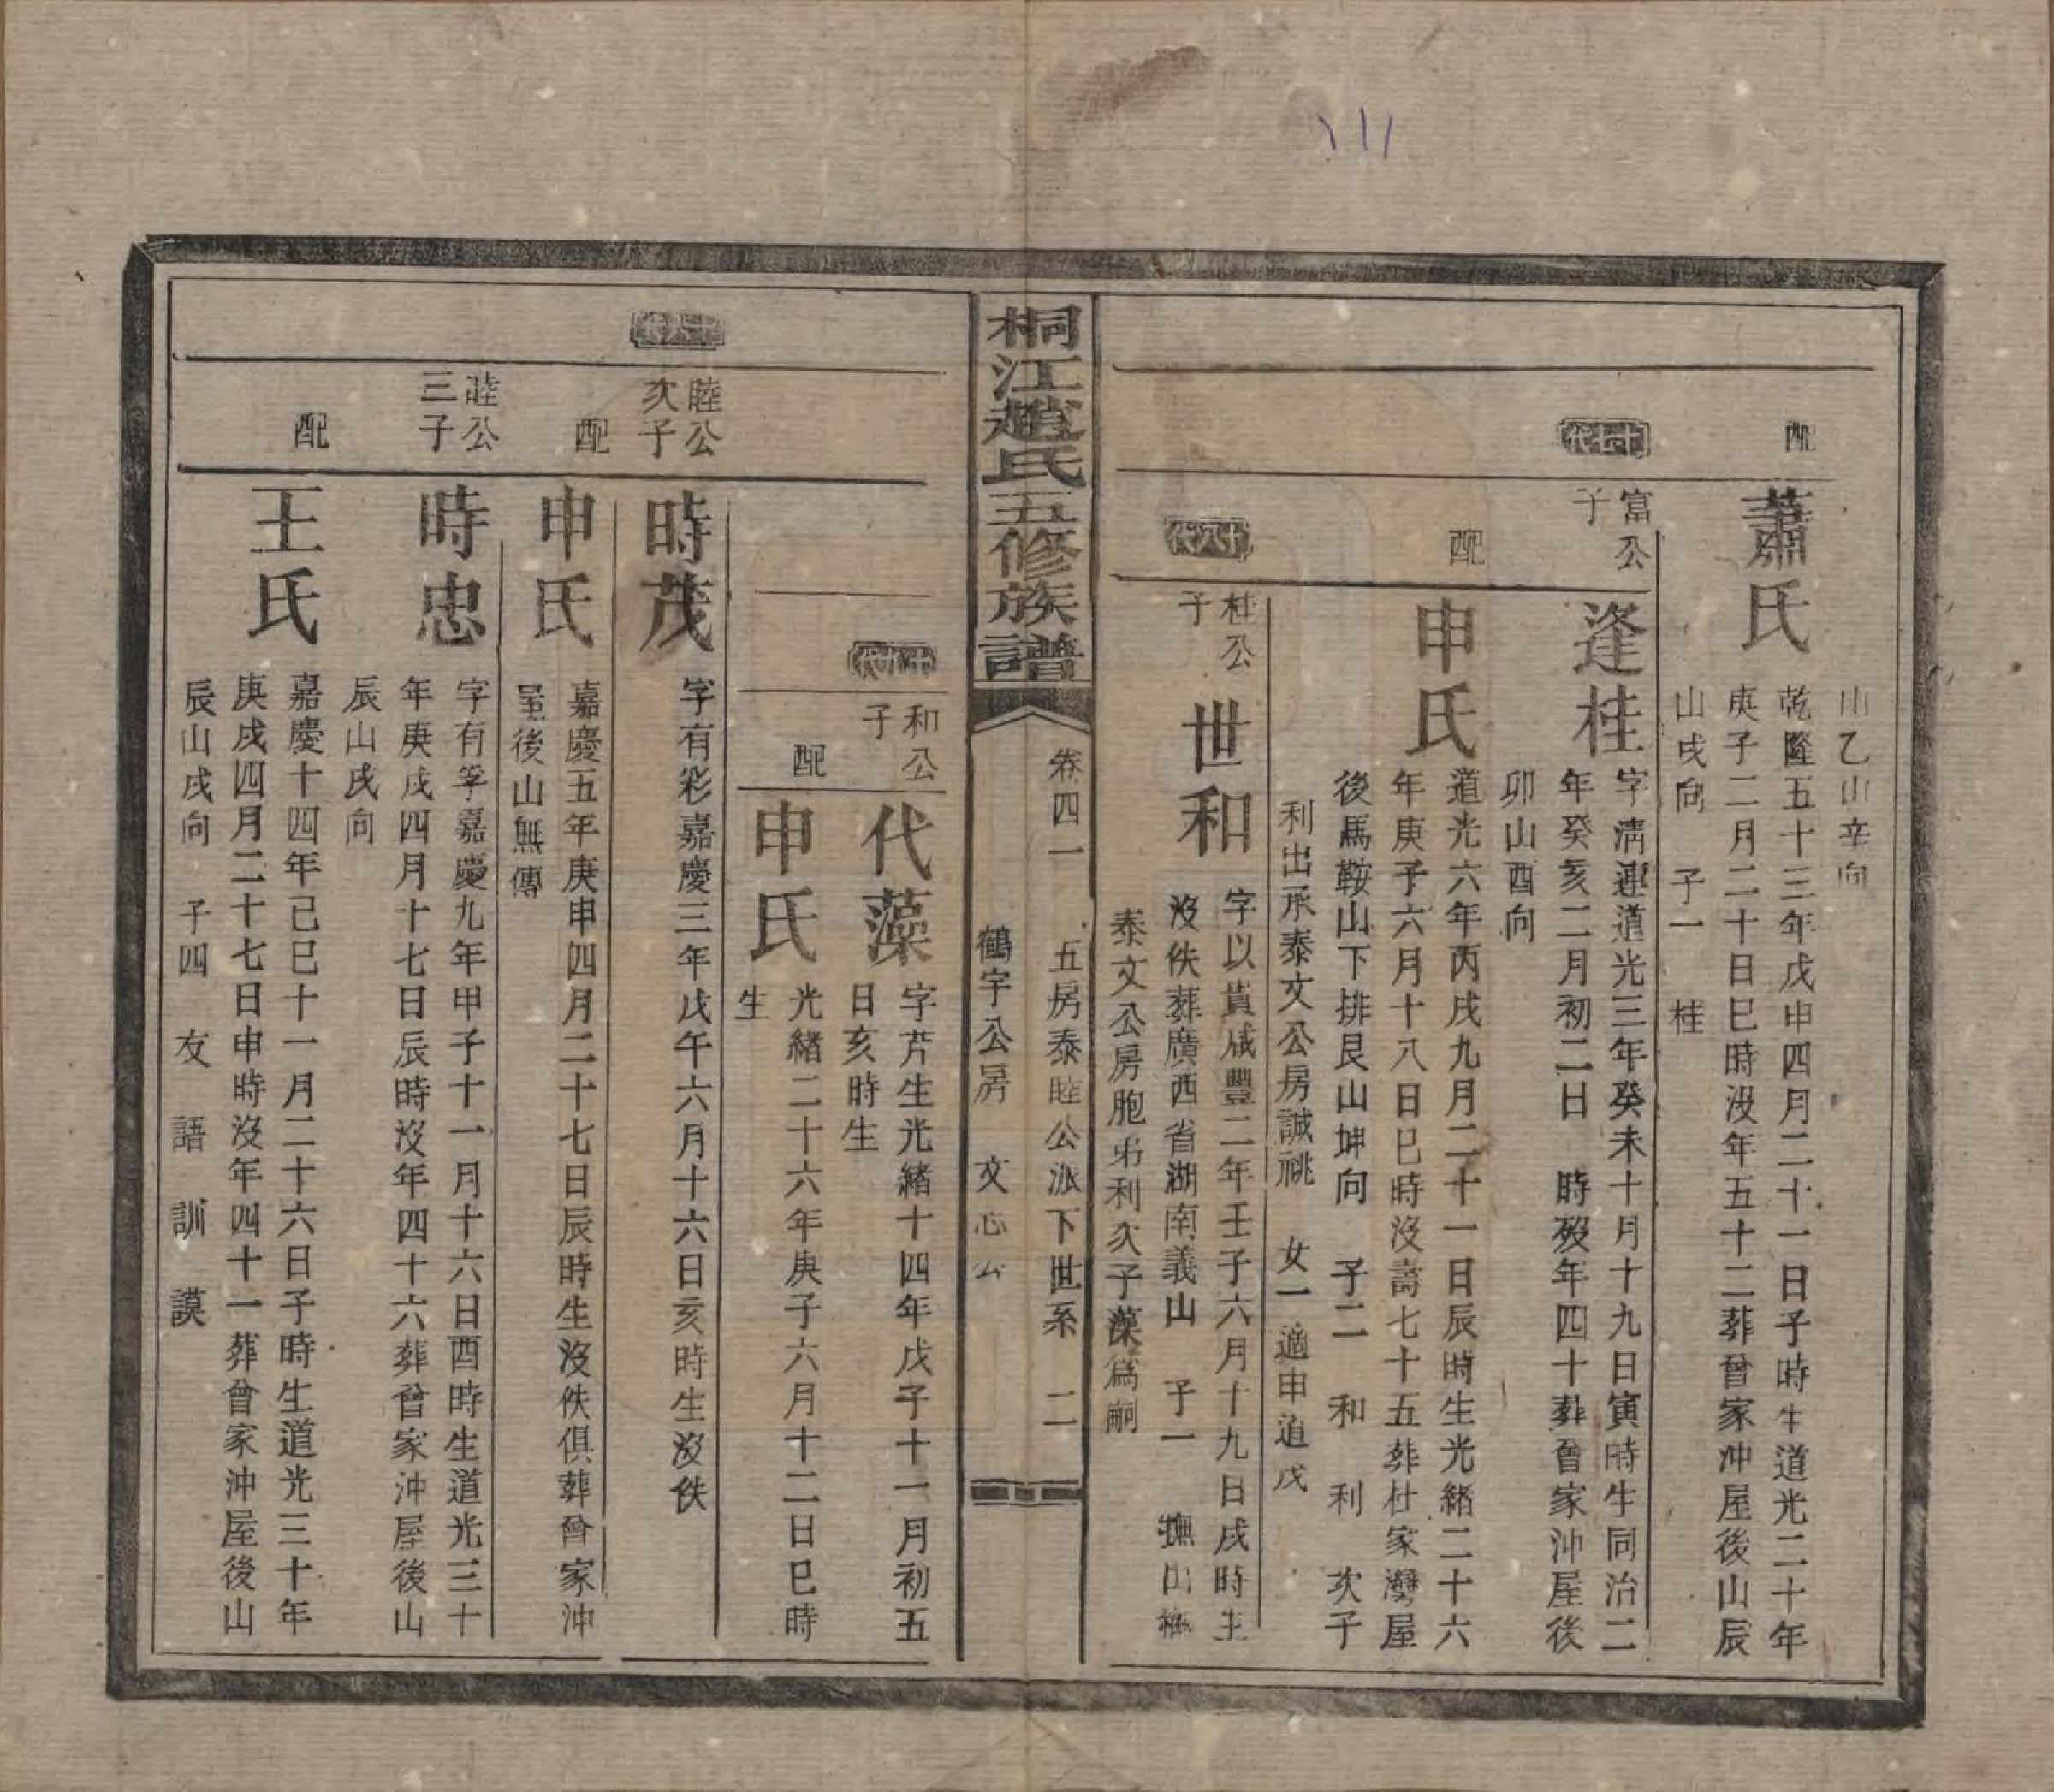 山乙山辛向
配
蕭氏
乾隆五十三年戊申四月二十一日子時生道光二十年
庚子二月二十日巳時沒年五十二葬曾家沖屋後山辰
山戌向 子一 桂
十七代
富公
子
逢桂
字淸連道光三年癸未十月十九日寅時生同治二
年癸亥二月初二日 時歿年四十葬曾家沖屋後
卯山酉向
配
申氏
道光六年丙戌九月二十一日辰時生光緒二十六
年庚子六月十八日巳時沒壽七十五葬杜家灣屋
後馬鞍山下排艮山坤向 子二 和 利 次子
利出承泰文公房誠祧 女一適申道戊
十八代
桂公
子
世和
字以貴咸豐二年壬子六月十九日戌時生
沒佚葬廣西省湖南義山 子一 撫
泰文公房胞弟利次子藻爲嗣
桐江趙氏五修族譜
卷四一 五房泰睦公派下世系 二
鶴字公房 文 公
十九代
和公
子
代藻
字芹生光緒十四年戊子十一月初五
日亥時生
配
申氏
光緒二十六年庚子六月十二日巳時
生
十六代
睦公
次子
時茂
字有彩嘉慶三年戊午六月十六日亥時生沒佚
配
申氏
嘉慶五年庚申四月二十七日辰時生沒佚俱葬曾家沖
屋後山無傳
睦公
三子
時忠
字有孚嘉慶九年甲子十一月十六日酉時生道光三十
年庚戌四月十七日辰時沒年四十六葬曾家沖屋後山
辰山戌向
配
王氏
嘉慶十四年己巳十一月二十六日子時生道光三十年
庚戌四月二十七日申時沒年四十一葬曾家沖屋後山
辰山戌向 子四 友 語 訓 謨